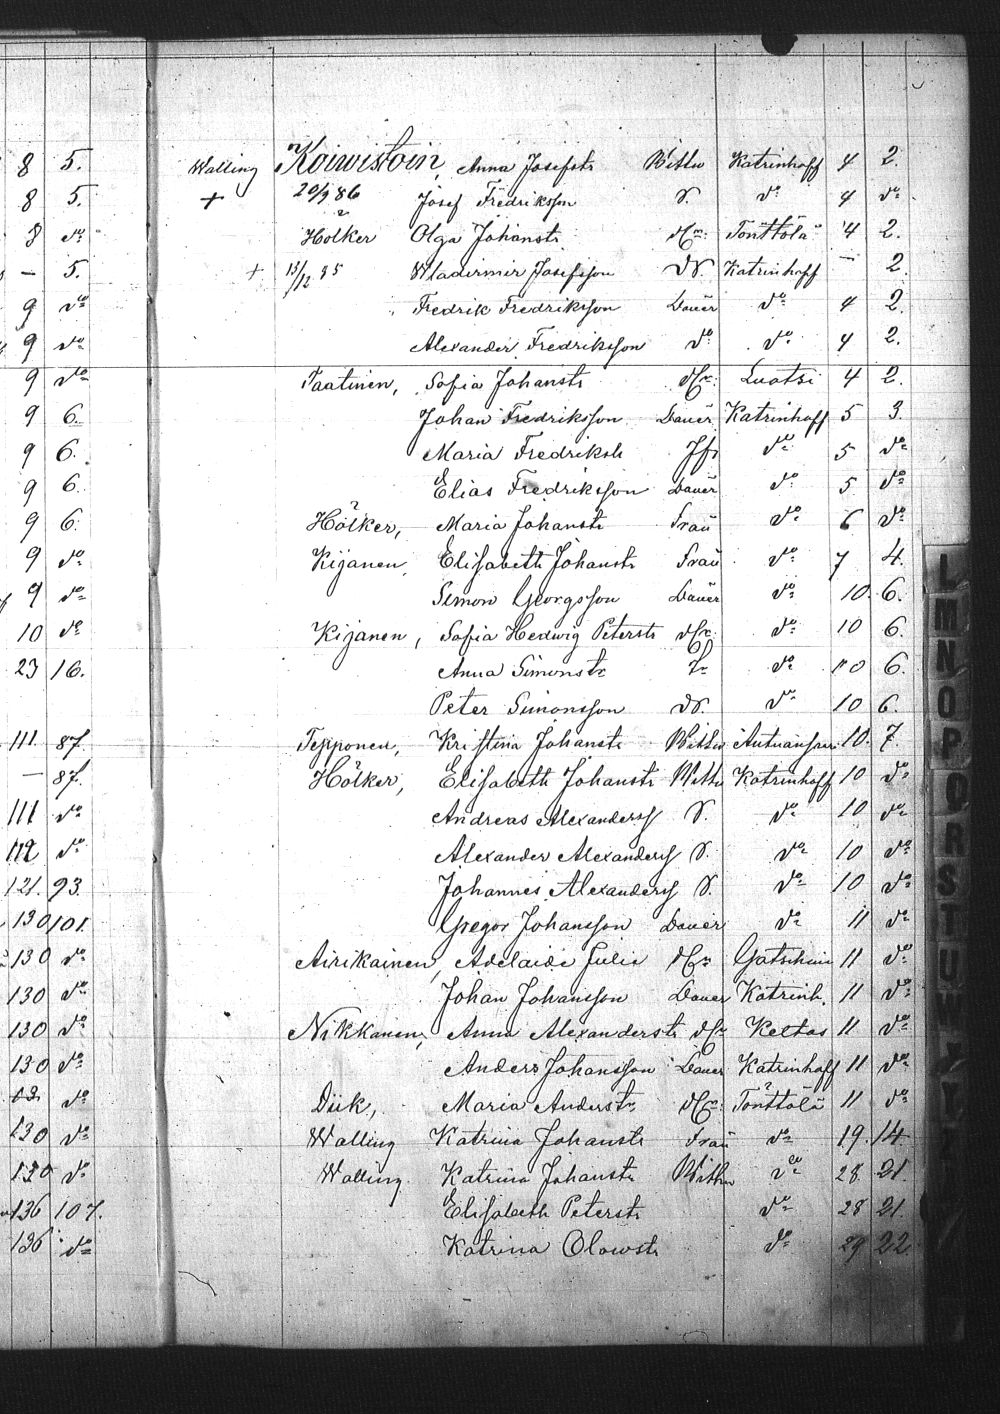 8 5. Walling Koiwistoin, Anna Josefstr Wittw Katrinhoff 4 2.
8 5. + 20/9 86 Josef Fredriksson S. do 4 do
8 do Hölker Olga Johanstr Tönttölä 4 2.
— 5. + 13/12 85 Wladimir Josefsson Katrinhoff — 2
9 do Fredrik Fredriksson Bauer do 4 2.
9 do Alexander Fredriksson do do 4 2.
9 do Taatinen, Sofia Johanstr Luotsi 4 2.
9 6. Johan Fredriksson Bauer Katrinhoff 5 3.
9 6. Maria Fredrikstr Jfr do 5 do
9 6. Elias Fredriksson Bauer do 5 do
9 6. Hölker, Maria Johanstr Frau do 6 do
9 do Kijanen, Elisabeth Johanstr Frau do 7 4.
9 do Simon Georgsson Bauer do 10. 6.
10 do Kijanen, Sofia Hedwig Peterstr do 10 6.
23 16. Anna Simonstr do 10 6.
Peter Simonsson do 10 6.
111. 87. Tepponen, Kristina Johanstr Wittw 10. 7.
— 87. Hölker, Elisabeth Johanstr Wittw Katrinhoff 10 do
111 do Andreas Alexanderss S. do 10 do
112 do Alexander Alexanderss S. do 10 do
121. 93. Johannes Alexanderss S. do 10 do
130 101. Gregor Johansson Bauer do 11 do
130 do Airikainen, Adelaide Julia 11 do
130 do Johan Johansson Bauer Katrinh. 11 do
130 do Nikkanen, Anna Alexanderstr Keltos 11 do
130 do Anders Johansson Bauer Katrinhoff 11 do
do Diik, Maria Anderstr Tönttölä 11 do
130 do Walling Katrina Johanstr Frau do 19. 14.
130 do Walling Katrina Johanstr Wittw do 28. 21.
136 107. Elisabeth Peterstr do 28 21.
136 do Katrina Olowstr do 29 22.
L
M
N
O
P
Q
R
S
T
U